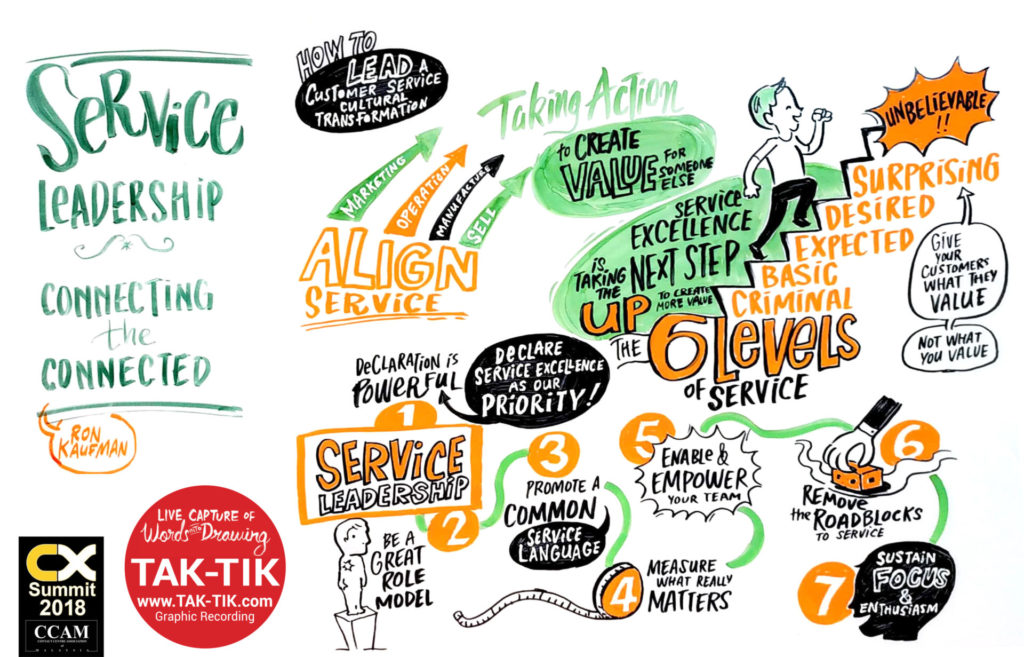 SERVICE
LEADERSHIP
CONNECTING
the
CONNECTED
RON
KAUFMAN
HOW TO
LEAD A
CUSTOMER SERVICE
CULTURAL
TRANSFORMATION
MARKETING
OPERATION
MANUFACTURE
SELL
ALIGN
SERVICE
Taking Action
to CREATE
VALUE FOR
SOMEONE
ELSE
SERVICE
EXCELLENCE
IS
TAKING
THE
NEXT STEP
UP
TO CREATE
MORE VALUE
UNBELIEVABLE
!!
SURPRISING
DESIRED
EXPECTED
BASIC
CRIMINAL
THE
6 LEVELS
OF SERVICE
GIVE
YOUR
CUSTOMERS
WHAT THEY
VALUE
NOT WHAT
YOU VALUE
DECLARATION IS
POWERFUL
DECLARE
SERVICE EXCELLENCE
AS OUR
PRIORITY!
1
SERVICE
LEADERSHIP
2
BE A
GREAT
ROLE
MODEL
3
PROMOTE A
COMMON
SERVICE
LANGUAGE
4
MEASURE
WHAT REALLY
MATTERS
5
ENABLE &
EMPOWER
YOUR TEAM
6
REMOVE
the ROADBLOCKS
TO SERVICE
7
SUSTAIN
FOCUS
&
ENTHUSIASM
CX
Summit
2018
CCAM
LIVE, CAPTURE OF
Words INTO Drawing
TAK-TIK
www.TAK-TIK.com
Graphic Recording